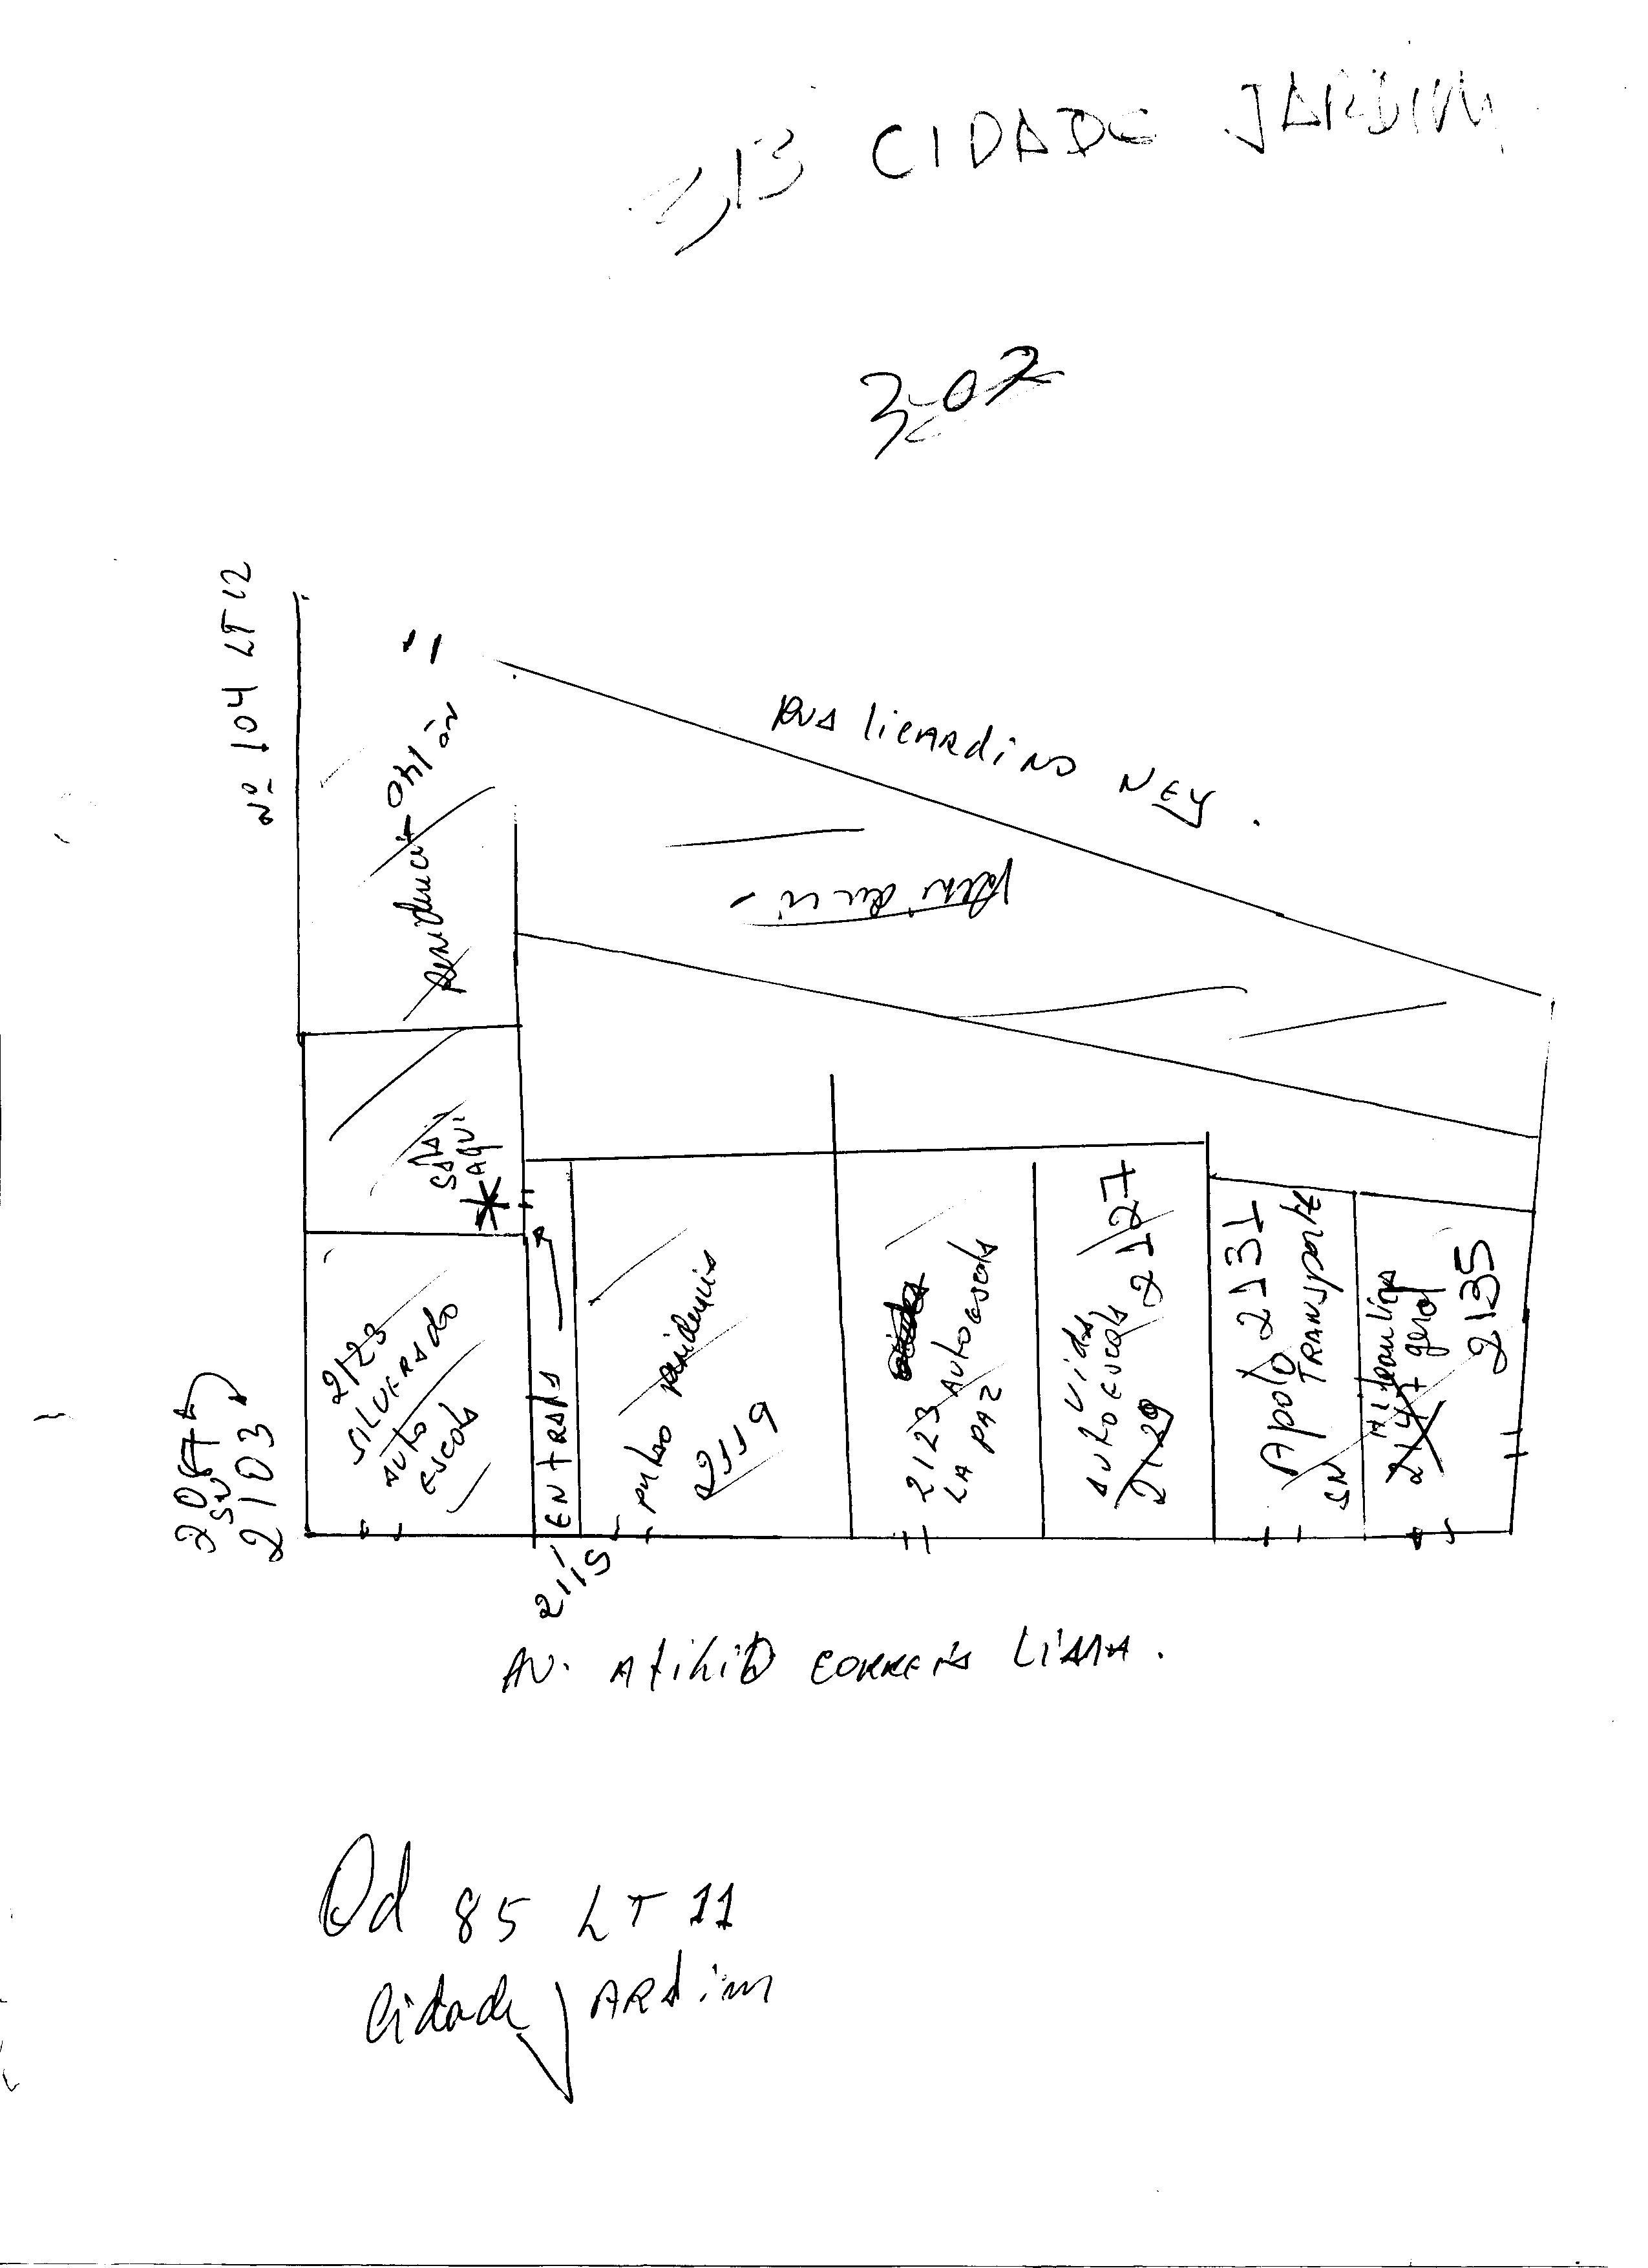 313 CIDADE JARDIM
307
Nº 104 LT 12
RUA licARdiNO NEY.
SALA
AQUI
2123
SILVERADO
AUTO
ESCOLA
2087
SN
2103
ENTRADA
2115
residencia
2119
2123 AUTO ESCOLA
LA PAZ
VIDA
AUTO ESCOLA
2127
2129
Apolo 2131
TRANSporte
SN
geral
2135
AV. AtiliO CORREIA LiMA.
Qd 85 LT 11
Cidade JARdim